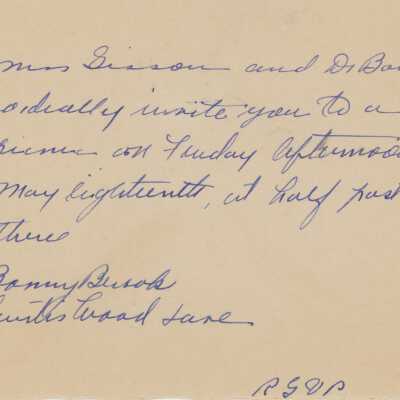 Mrs Sisson and Dr Bar
cordially invite you to a
picnic on Friday Afternoon
May eighteenth, at half past
three
Bonny Brook
wood Lane
RSVP